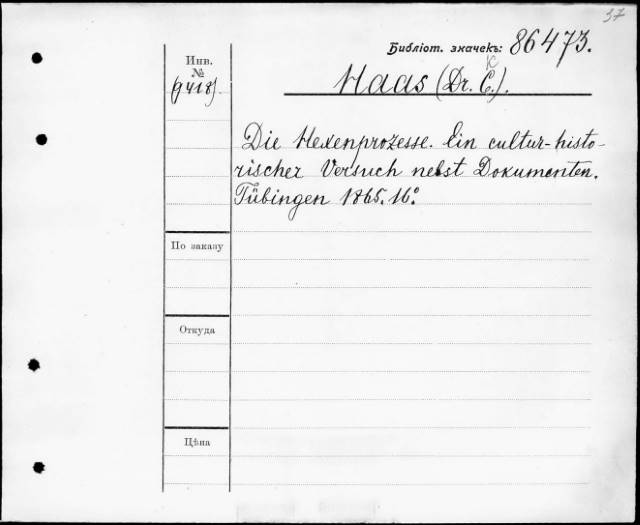 37
Библіот. значекъ: 86473.
Инв.
№
(9418).
K
Haas (Dr. C.).
Die Hexenprozesse. Ein cultur-histo-
rischer Versuch nebst Dokumenten.
Tübingen 1865. 16°.
По заказу
Откуда
Цѣна